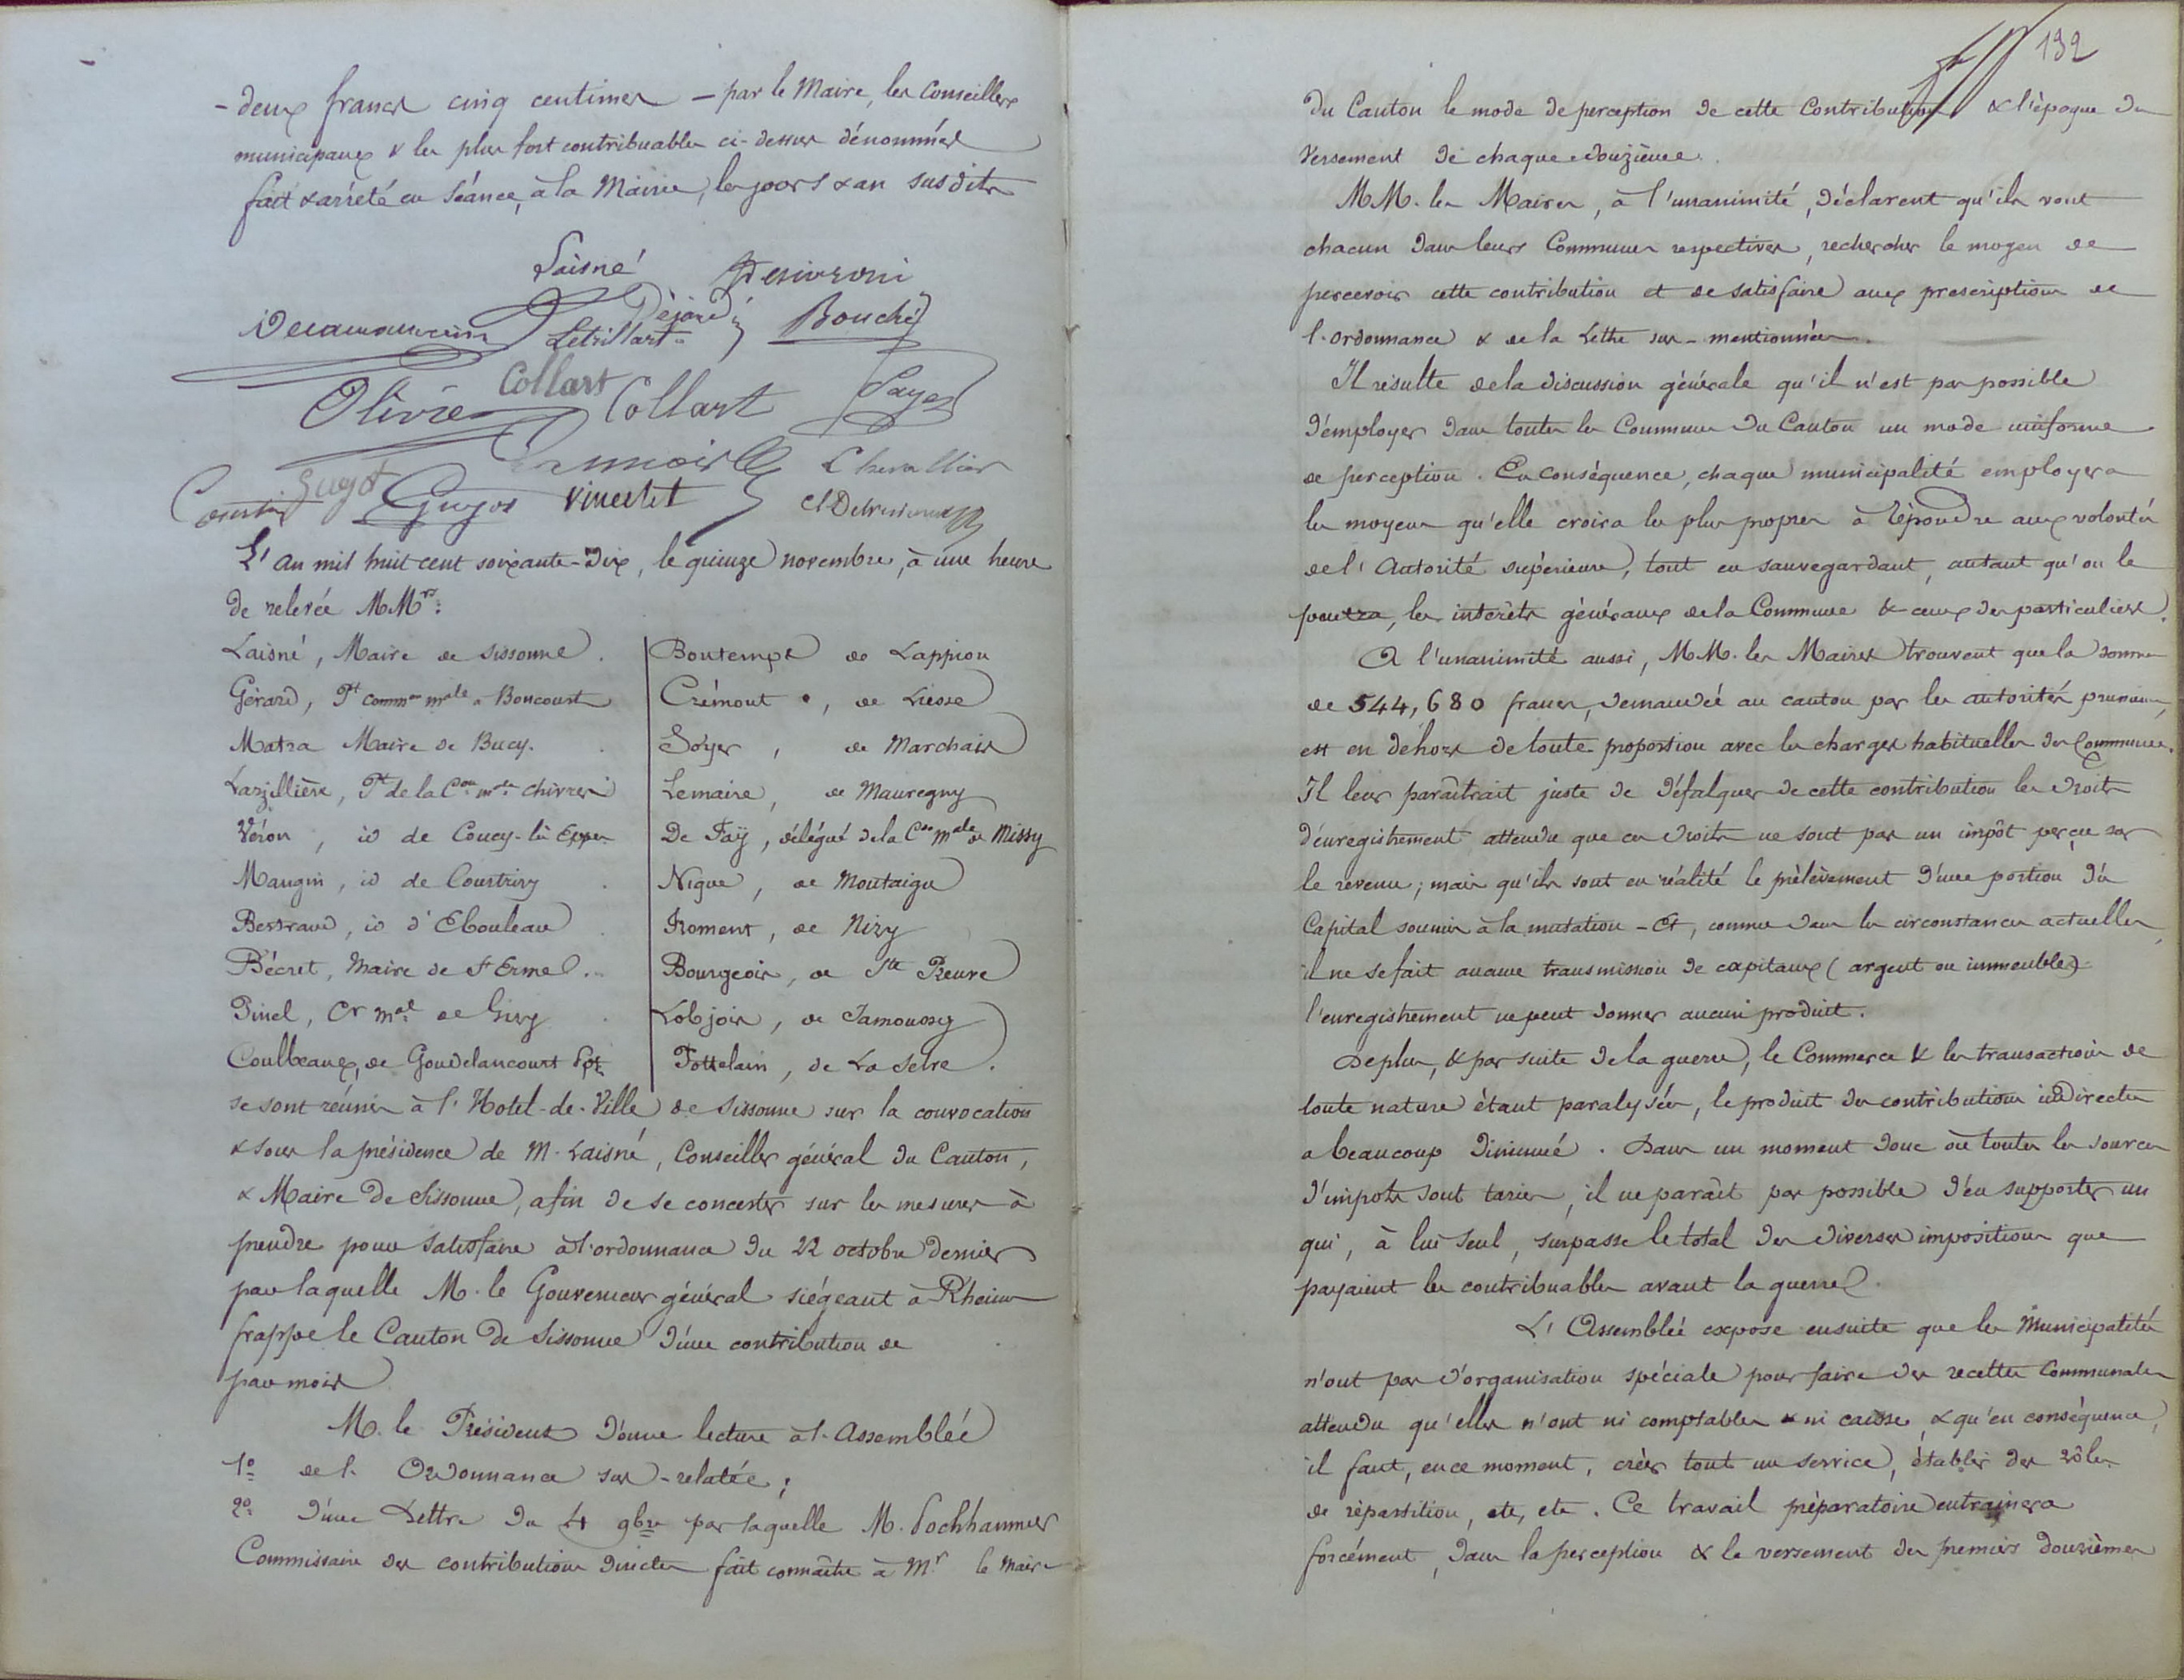 - deux francs cinq centimes - par le Maire, les Conseillers
municipaux & les plus fort contribuables ci-dessus dénommés
fait & arrêté en séance, à la Mairie, les jours & an susdits
Laisné
Dejard Bouché
Letillart
Olivier Collart Collart
Lannois Chevallier
Guyot Guyot
L'an mil huit cent soixante-dix, le quinze novembre, à une heure
de relevée MMrs:
Laisné, Maire de Sissonne.
Gérard, Pt common male à Boncourt
Matra Maire de Bucy.
Larzillière, Pt de la Con mle Chivres
Véron, id de Coucy-les Eppes
Maugin, id de Courtrizy
Bertrand, id d'Ebouleau
Bécret, Maire de St Erme.
Pinel, Cr mal de Gizy
Coulbeaux, de Goudelancourt
Bontemps de Lappion
Crémont, de Liesse
Soyer, de Marchais
Lemaire, de Mauregny
De Faÿ, délégué de la Con male de Missy
Nique, de Montaigu
Froment, de Nizy
Bourgeois, de Ste Preuve
Lobjois, de Samoussy
Pottelain, de La Selve.
se sont réunis à l'Hotel-de-Ville de Sissonne sur la convocation
& sous la présidence de M. Laisné, Conseiller général du Canton,
& Maire de Sissonne, afin de se concerter sur les mesures à
prendre pour satisfaire à l'ordonnance du 22 octobre dernier
par laquelle M. le Gouverneur général siégeant à Rheims
frappe le Canton de Sissonne d'une contribution de
par mois
M. le Président donne lecture à l'Assemblée
1o de l'Ordonnance sus-relatée;
2o d'une Lettre du 4 9bre par laquelle M. Pochhammer
Commissaire des contributions directes fait connaître à Mr le Maire
132
du Canton le mode de perception de cette Contribution & l'époque du
Versement de chaque douzième.
MM. les Maires, à l'unanimité, déclarent qu'ils vont
chacun dans leurs Communes respectives, rechercher le moyen de
percevoir cette contribution et de satisfaire aux prescriptions de
l'ordonnance & de la Lettre sus-mentionnées.
Il résulte de la discussion générale qu'il n'est pas possible
d'employer dans toutes les Communes du Canton un mode uniforme
de perception. En conséquence, chaque municipalité employera
les moyens qu'elle croira les plus propres à répondre aux volontés
de l'Autorité supérieure, tout en sauvegardant, autant qu'on le
pourra, les intérêts généraux de la Commune & ceux des particuliers.
A l'unanimité aussi, MM. les Maires trouvent que la somme
de 544,680 francs, demandée au canton par les autorités prussiennes,
est en dehors de toute proportion avec les charges habituelles des Communes.
Il leur paraîtrait juste de défalquer de cette contribution les droits
d'enregistrement attendu que ces droits ne sont pas un impôt perçu sur
le revenu; mais qu'ils sont en réalité le prélèvement d'une portion du
Capital soumis à la mutation - Et, comme dans les circonstances actuelles,
il ne se fait aucune transmission de capitaux (argent ou immeubles)
l'enregistrement ne peut donner aucun produit.
De plus, & par suite de la guerre, le Commerce & les transactions de
toute nature étant paralysées, le produit des contributions indirectes
a beaucoup diminué. Dans un moment donc où toutes les sources
d'impots sont taries, il ne paraît pas possible d'en supporter un
qui, à lui seul, surpasse le total des diverses impositions que
payaient les contribuables avant la guerre.
L'Assemblée expose ensuite que les Municipalités
n'ont pas d'organisation spéciale pour faire des recettes Communales
attendu qu'elles n'ont ni comptables & ni caisse, & qu'en conséquence,
il faut, en ce moment, créer tout un service, établir des rôles
de répartition, etc, etc. Ce travail préparatoire entrainera
forcément, dans la perception & le versement des premiers douzièmes